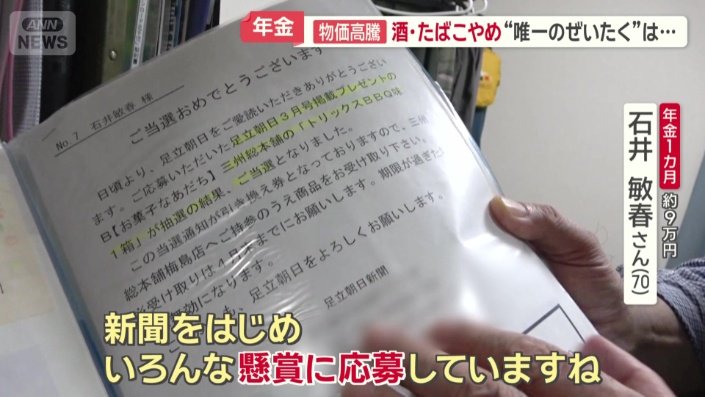 ANN
NEWS
年金
物価高騰
酒・たばこやめ“唯一のぜいたく”は…
年金1カ月 約9万円
石井 敏春さん(70)
No 7 石井敏春 様
ご当選おめでとうございます
日頃より、足立朝日をご愛読いただきありがとうござい
ます。ご応募いただいた足立朝日3月号掲載プレゼントの
日【お菓子なあだち】三州総本舗の「トリックスBBQ味
1箱」が抽選の結果、ご当選となりました。
この当選通知が引き換え券となっておりますので、三州
総本舗梅島店へご持参のうえ商品をお受け取り下さい。
お受け取りは4月
までにお願いします。期限が過ぎた
無効になります。
足立朝日をよろしくお願いします。
足立朝日新聞
新聞をはじめ
いろんな懸賞に応募していますね